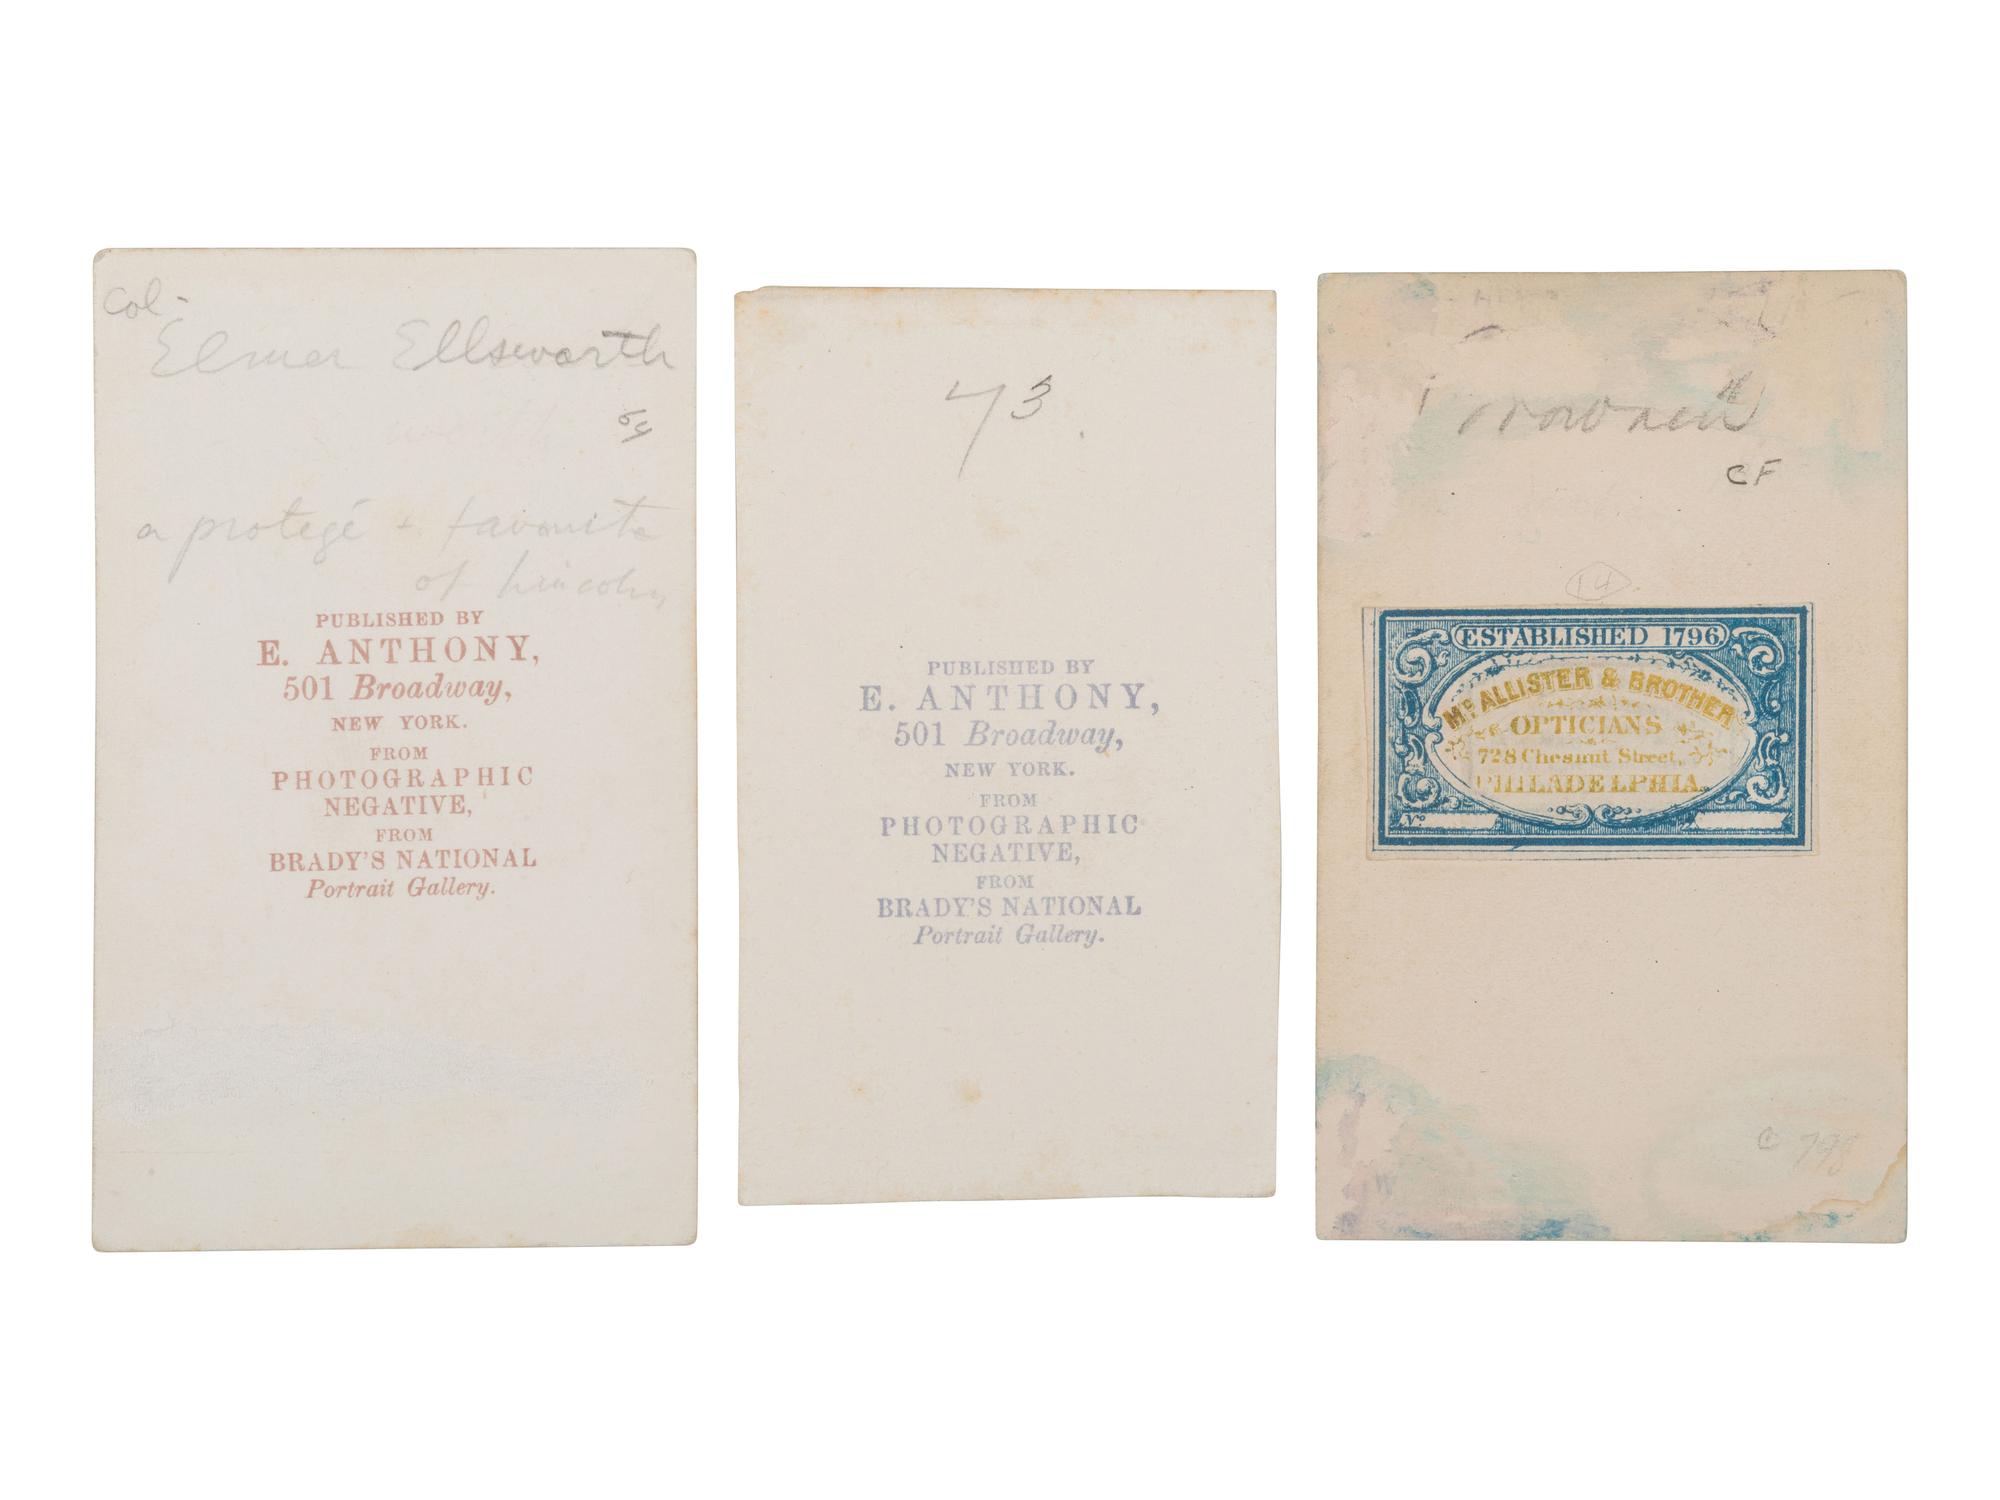 Col-
Elmer Ellsworth
a protegé + favorite
of Lincoln
PUBLISHED BY
E. ANTHONY,
501 Broadway,
NEW YORK.
FROM
PHOTOGRAPHIC
NEGATIVE,
FROM
BRADY'S NATIONAL
Portrait Gallery.
73.
PUBLISHED BY
E. ANTHONY,
501 Broadway,
NEW YORK.
FROM
PHOTOGRAPHIC
NEGATIVE,
FROM
BRADY'S NATIONAL
Portrait Gallery.
CF
14
ESTABLISHED 1796
Mc ALLISTER & BROTHER
OPTICIANS
728 Chesnut Street,
PHILADELPHIA.
No
798